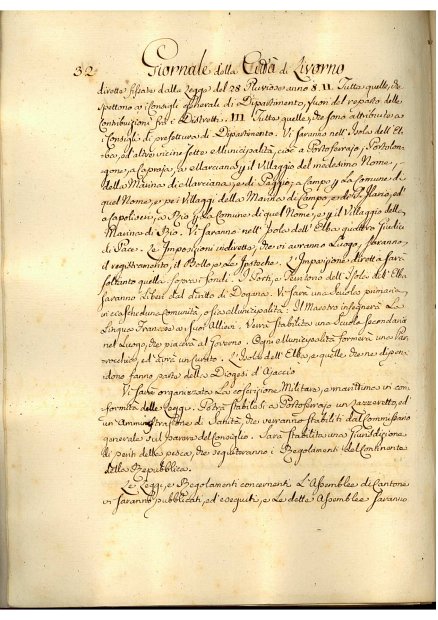 32 Giornale della Città di Livorno
dirette fissate dalla Legge del 28 Pluvioso anno 8. II. Tutte quelle, che
spettono a i Consigli generali di Dipartimento, fuori del reparto delle
Contribuzioni fra i Distretti. III. Tutte quelle, che sono attribuite a
i Consigli di prefettura di Dipartimento. Vi saranno nell' Isola dell' El,,
ba, ed altre vicine sette Municipalità, cioè a Portoferrajo, Portolon,,
gone, a Capraja, a Marciana p il Villaggio del medesimo Nome,
della Marina di Marciana, e di Poggio, a Campo p la Comune di
quel Nome, e pei Villaggi della Marina di Campo, e di S. Ilario, ed
a Capoliveri, a Rio p la Comune di quel Nome, e p il Villaggio della
Marina di Rio. Vi saranno nell' Isola dell' Elba quattro Giudici
di Pace. Le Imposizioni indirette, che vi avranno Luogo, saranno
il registramento, il Bollo, e Le Ipoteche. L' Imposizione diretta sarà
soltanto quella sopra i fondi. I Porti, e Territorio dell' Isola dell' Elba
saranno liberi dal diritto di Dogana. Vi sarà una Scuola primaria
in ciascheduna Comunità, o sia Municipalità: Il Maestro insegnerà La
Lingua Francese a i suoi Allievi. Verrà stabilita una Scuola Secondaria
nel Luogo, che piacerà al Governo. Ogni Municipalità formerà una Par,,
rocchia, ed avrà un Curato. L' Isola dell' Elba, e quelle che ne dipen,,
dono fanno parte della Diogesi d' Ajaccio
Vi sarà organizzata La coscrizione Militare, e marittima in con,,
formità delle Leggi. Potrà stabilirsi a Portoferrajo un Lazzeretto, ed
un' Amministrazione di Sanità, che verranno stabiliti dal Commissario
generale sul parere del Consiglio. Sarà stabilita una Giurisdizione
di periti della pesca, che seguiteranno i Regolamenti del Continente
della Repubblica.
Le Leggi, e Regolamenti concernenti L' Assemblee di Cantone
vi saranno pubblicati, ed eseguiti, e Le dette Assemblee saranno